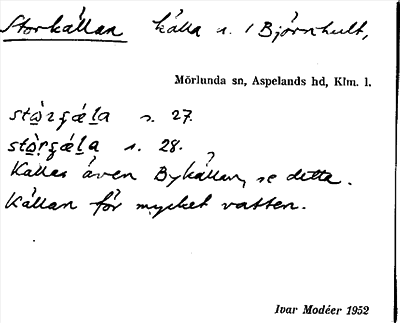 Storkällan källa s. i Björnhult,
Mörlunda sn, Aspelands hd, Klm. l.
s. 27.
s. 28.
Kallas även Bykällan, se detta.
Källan för mycket vatten.
Ivar Modéer 1952